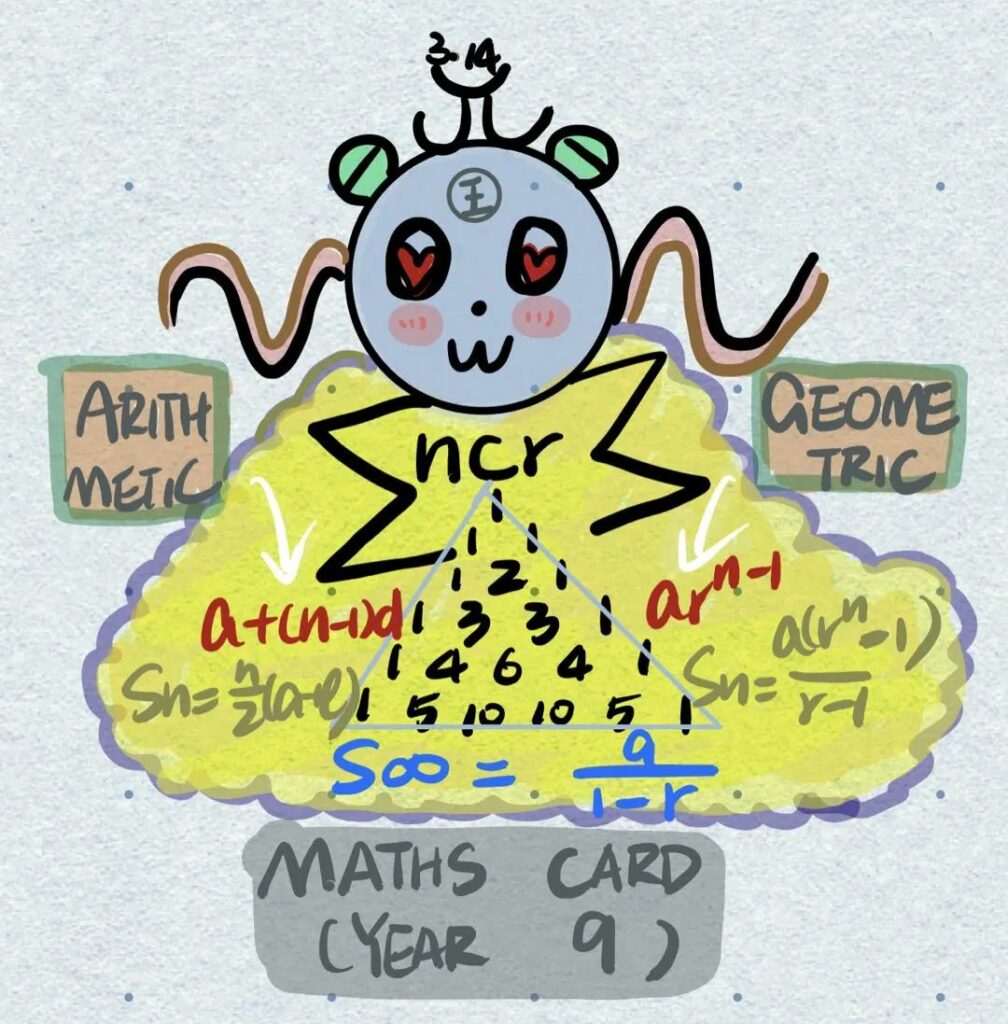 3.14
王
ARITH
METIC
GEOME
TRIC
ncr
1
1 1
1 2 1
1 3 3 1
1 4 6 4 1
1 5 10 10 5 1
a+(n-1)d
Sn=n/2(a-l)
ar^n-1
Sn=a(r^n-1)/r-1
S∞ = a/1-r
MATHS CARD
(YEAR 9)